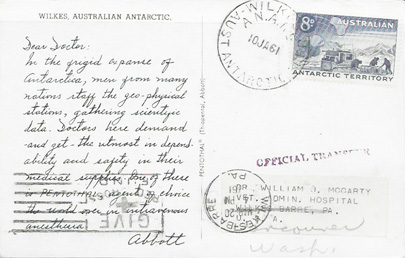 WILKES, AUSTRALIAN ANTARCTIC.
Dear Doctor:
In the frigid expanse of
Antarctica, men from many
nations staff the geo-physical
stations, gathering scientific
data. Doctors here demand
-and get- the utmost in depend-
ability and safety in their
medical supplies. One of these
is PENTOTHAL, agent of choice
the world over in intravenous
anesthesia.
Abbott
PENTOTHAL® (Thiopental, Abbott)
WILKES
A.N.A.R.E.
10JA61
AUST ANTARCTIC
8D AUSTRALIAN
ANTARCTIC TERRITORY
OFFICIAL
WILKES-BARRE
PA.
MAR 20
PM
1961
GIVE
WILLIAM D. MCCARTY
ADMIN. HOSPITAL
BARRE, PA.
Vancouver
Wash.